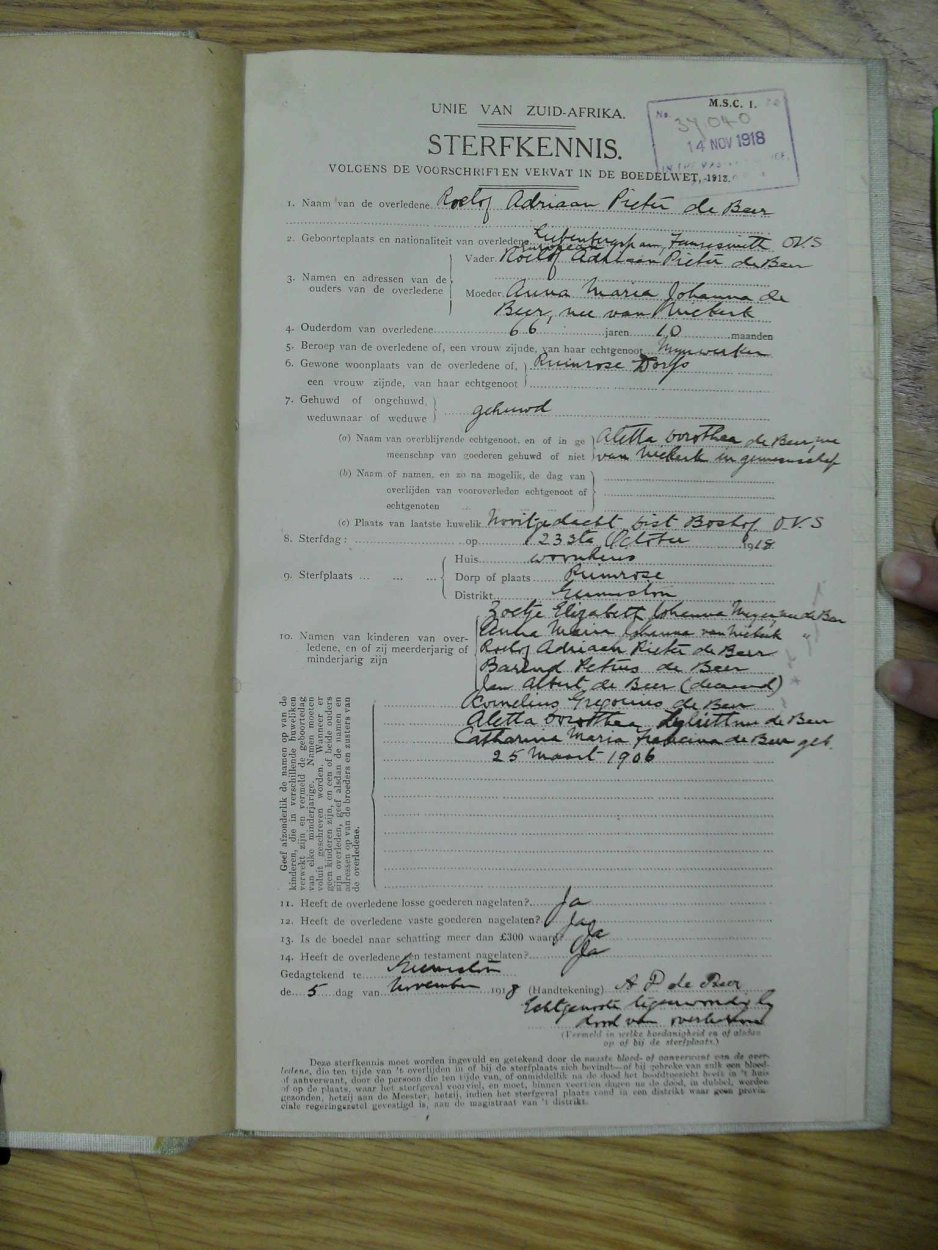 M.S.C. 1.
UNIE VAN ZUID-AFRIKA.
No. 37040
14 NOV 1918
STERFKENNIS.
VOLGENS DE VOORSCHRIFTEN VERVAT IN DE BOEDELWET, 1913.
1. Naam van de overledene Roelof Adriaan Pieter de Beer
2. Geboorteplaats en nationaliteit van overledene Fauresmith O.V.S
European
3. Namen en adressen van de ouders van de overledene
Vader Roelof Adriaan Pieter de Beer
Moeder Anna Maria Johanna de
Beer, nee van Niekerk
4. Ouderdom van overledene 66 jaren 10 maanden
5. Beroep van de overledene of, een vrouw zijnde, van haar echtgenoot Mynwerker
6. Gewone woonplaats van de overledene of, Primrose Dorp
een vrouw zijnde, van haar echtgenoot
7. Gehuwd of ongehuwd, weduwnaar of weduwe gehuwd
(a) Naam van overblijvende echtgenoot, en of in ge Aletta Dorothea de Beer, nee
meenschap van goederen gehuwd of niet van Niekerk in gemeenschap
(b) Naam of namen, en zo na mogelik, de dag van
overlijden van vooroverleden echtgenoot of
echtgenoten
(c) Plaats van laatste huwelik Nooitgedacht Dist Boshof O.V.S
8. Sterfdag: op 23ste October 1918
9. Sterfplaats
Huis woonhuis
Dorp of plaats Primrose
Distrikt Germiston
10. Namen van kinderen van over-
ledene, en of zij meerderjarig of
minderjarig zijn
Zoetje Elizabeth Johanna Meyer nee de Beer
Anna Maria Johanna van Niekerk "
Roelof Adriaan Pieter de Beer
Barend Petrus de Beer
Jan Albert de Beer (deceased)
Cornelius de Beer
Aletta Dorothea de Beer
Catharina Maria Francina de Beer geb.
25 Maart 1906
Geef afzonderlik de namen op van de
kinderen, die in verschillende huweliken
verwekt zijn en vermeld de geboortedag
van elke minderjarige. Namen moeten
voluit geschreven worden. Wanneer er
geen kinderen zijn, en een of beide ouders
zijn overleden, geef alsdan de namen en
adressen op van de broeders en zusters van
de overledene.
11. Heeft de overledene losse goederen nagelaten? Ja
12. Heeft de overledene vaste goederen nagelaten? Ja
13. Is de boedel naar schatting meer dan £300 waard? Ja
14. Heeft de overledene een testament nagelaten? Ja
Gedagtekend te Germiston
de 5 dag van November 1918 (Handtekening) A D de Beer
Echtgenoote tegenwoordig by
dood van overledene
(Vermeld in welke hoedanigheid en of alsdan
op of bij de sterfplaats.)
Deze sterfkennis moet worden ingevuld en getekend door de naaste bloed- of aanverwant van de over-
ledene, die ten tijde van 't overlijden in of bij de sterfplaats zich bevindt—of bij gebreke van zulk een bloed-
of aanverwant, door de persoon die ten tijde van, of onmiddellik na de dood het hoofdtoezicht heeft in 't huis
of op de plaats, waar het sterfgeval voorviel, en moet, binnen veertien dagen na de dood, in dubbel, worden
gezonden, hetzij aan de Meester, hetzij, indien het sterfgeval plaats vond in een distrikt waar geen provin-
ciale regeringszetel gevestigd is, aan de magistraat van 't distrikt.